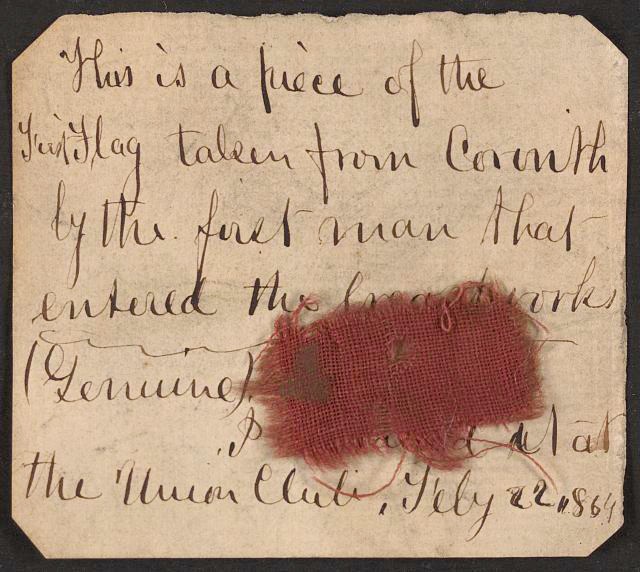 This is a piece of the
First Flag taken from Corinth
by the first man that
entered the breastworks
(Genuine).
at
the Union Club, Feby 22, 1864